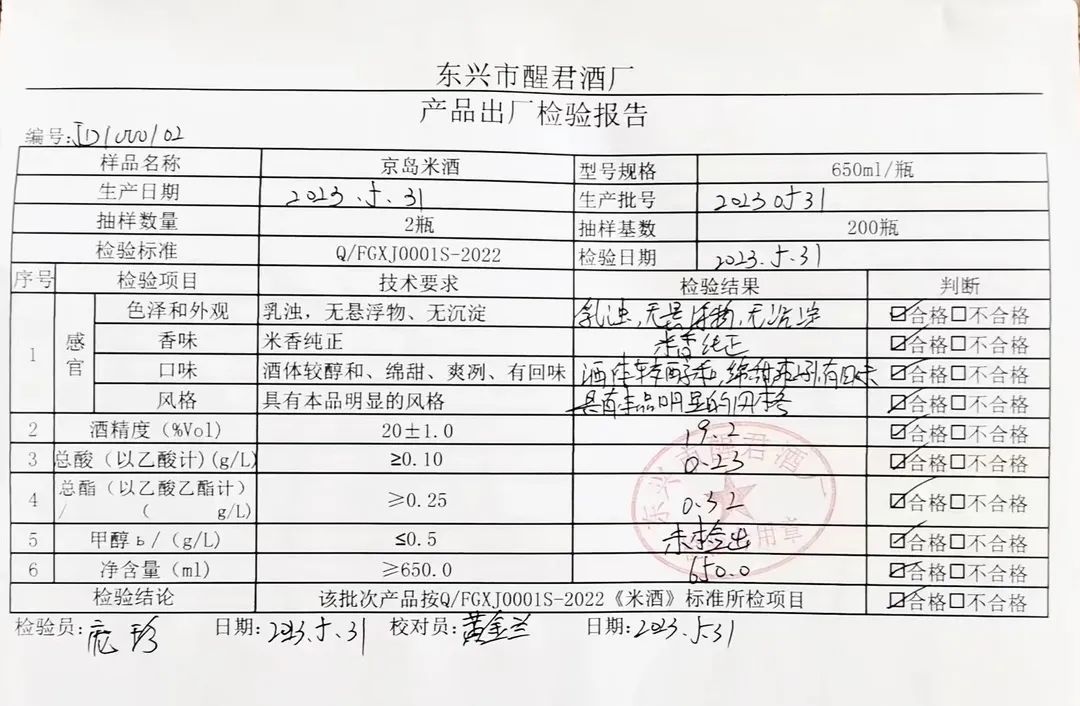 东兴市醒君酒厂
产品出厂检验报告
编号:JD1000102
样品名称 京岛米酒 型号规格 650ml/瓶
生产日期 2023.5.31 生产批号 20230531
抽样数量 2瓶 抽样基数 200瓶
检验标准 Q/FGXJ0001S-2022 检验日期 2023.5.31
序号 检验项目 技术要求 检验结果 判断
1 感官 色泽和外观 乳浊，无悬浮物、无沉淀 乳浊,无悬浮物,无沉淀 ☑合格□不合格
香味 米香纯正 米香纯正 ☑合格□不合格
口味 酒体较醇和、绵甜、爽冽、有回味 酒体较醇和,绵甜爽冽,有回味 ☑合格□不合格
风格 具有本品明显的风格 具有本品明显的风格 ☑合格□不合格
2 酒精度（%Vol） 20±1.0 19.2 ☑合格□不合格
3 总酸（以乙酸计)(g/L) ≥0.10 0.23 ☑合格□不合格
4 总酯（以乙酸乙酯计）/ （ g/L) ≥0.25 0.32 ☑合格□不合格
5 甲醇ь/（g/L） ≤0.5 未检出 ☑合格□不合格
6 净含量（ml） ≥650.0 650.0 ☑合格□不合格
检验结论 该批次产品按Q/FGXJ0001S-2022《米酒》标准所检项目 ☑合格□不合格
检验员: 日期:2023.5.31 校对员:黄金兰 日期:2023.5.31
东兴市醒君酒厂
用章